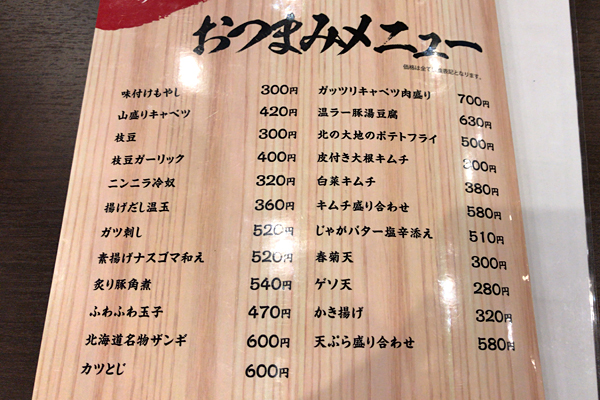 おつまみメニュー
味付けもやし 300円
山盛りキャベツ 420円
枝豆 300円
枝豆ガーリック 400円
ニンニラ冷奴 320円
揚げだし温玉 360円
ガツ刺し 520円
素揚げナスゴマ和え 520円
炙り豚角煮 540円
ふわふわ玉子 470円
北海道名物ザンギ 600円
カツとじ 600円
ガッツリキャベツ肉盛り 700円
温ラー豚湯豆腐 630円
北の大地のポテトフライ 500円
皮付き大根キムチ 300円
白菜キムチ 380円
キムチ盛り合わせ 580円
じゃがバター塩辛添え 510円
春菊天 300円
ゲソ天 280円
かき揚げ 320円
天ぷら盛り合わせ 580円